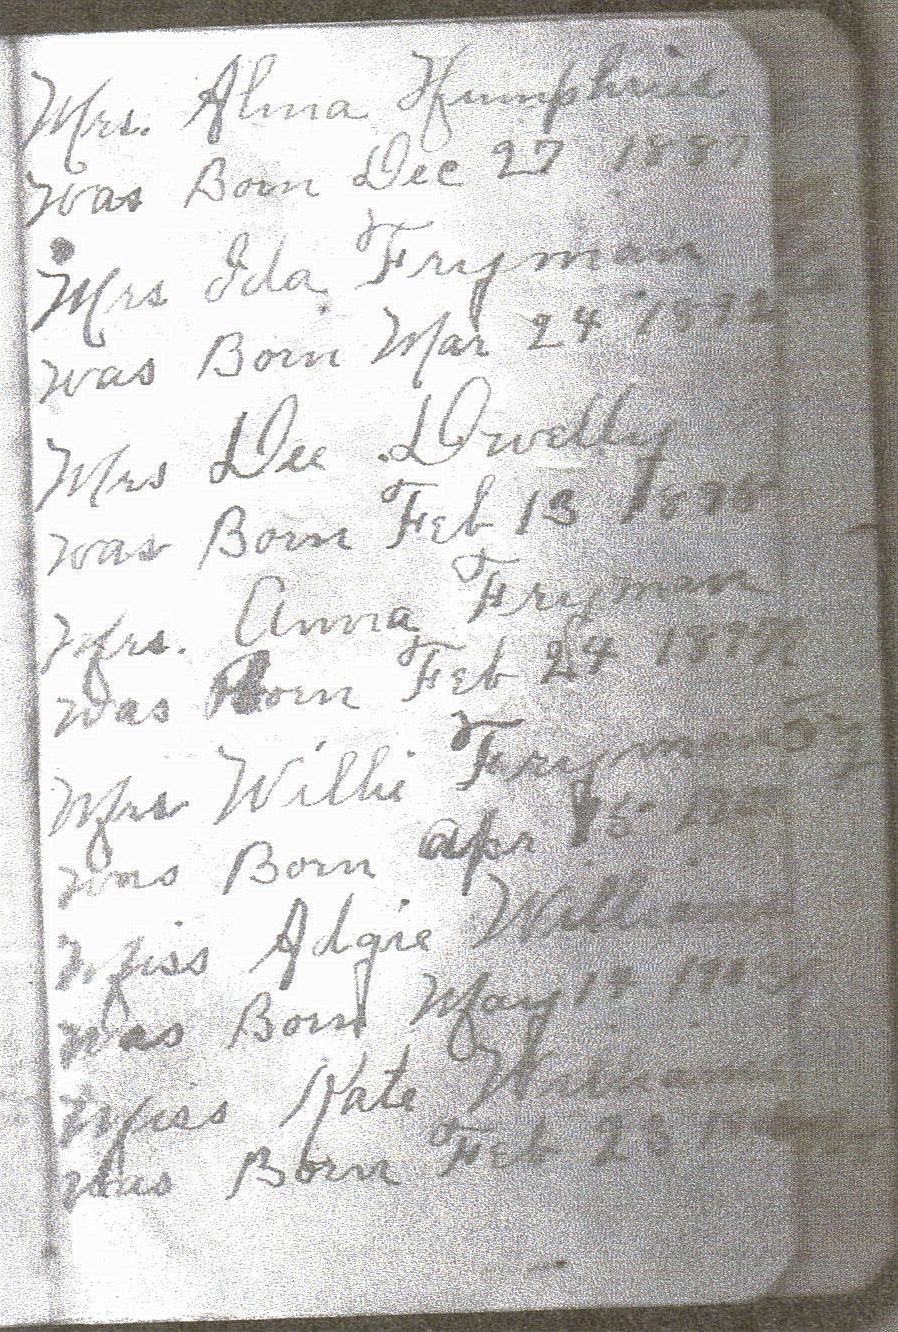 Mrs. Alma Humphries
was Born Dec 27 1887
Mrs Ida Fryman
was Born Mar 24 1892
Mrs Dee Dwelly
was Born Feb 13 1895
Mrs. Anna Fryman
was Born Feb 24 1897
Mrs Willie Fryman
was Born apr 15
Miss Algie Williams
was Born May 14 1903
Miss Kate Williams
was Born Feb 23